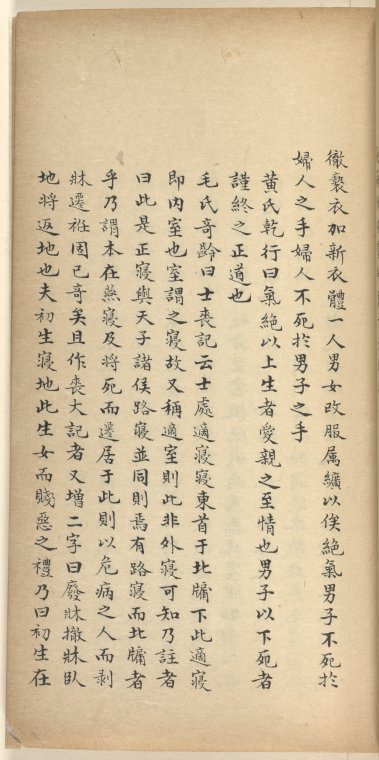 徹褻衣加新衣體一人男女改服属纊以俟絶氣男子不死於
婦人之手婦人不死於男子之手
黄氏乾行曰氣絶以上生者愛親之至情也男子以下死者
謹終之正道也
毛氏奇齡曰士喪記云士處適寢寢東首于北牖下此適寢
即内室也室謂之寢故又稱適室則此非外寢可知乃註者
曰此是正寢與天子諸侯路寢並同則焉有路寢而北牖者
乎乃謂本在燕寢及將死而遷居于此則以危病之人而剥
牀遷袵固已奇矣且作喪大記者又增二字曰廢牀撤牀臥
地將返地也夫初生寢地此生女而賤惡之禮乃曰初生在